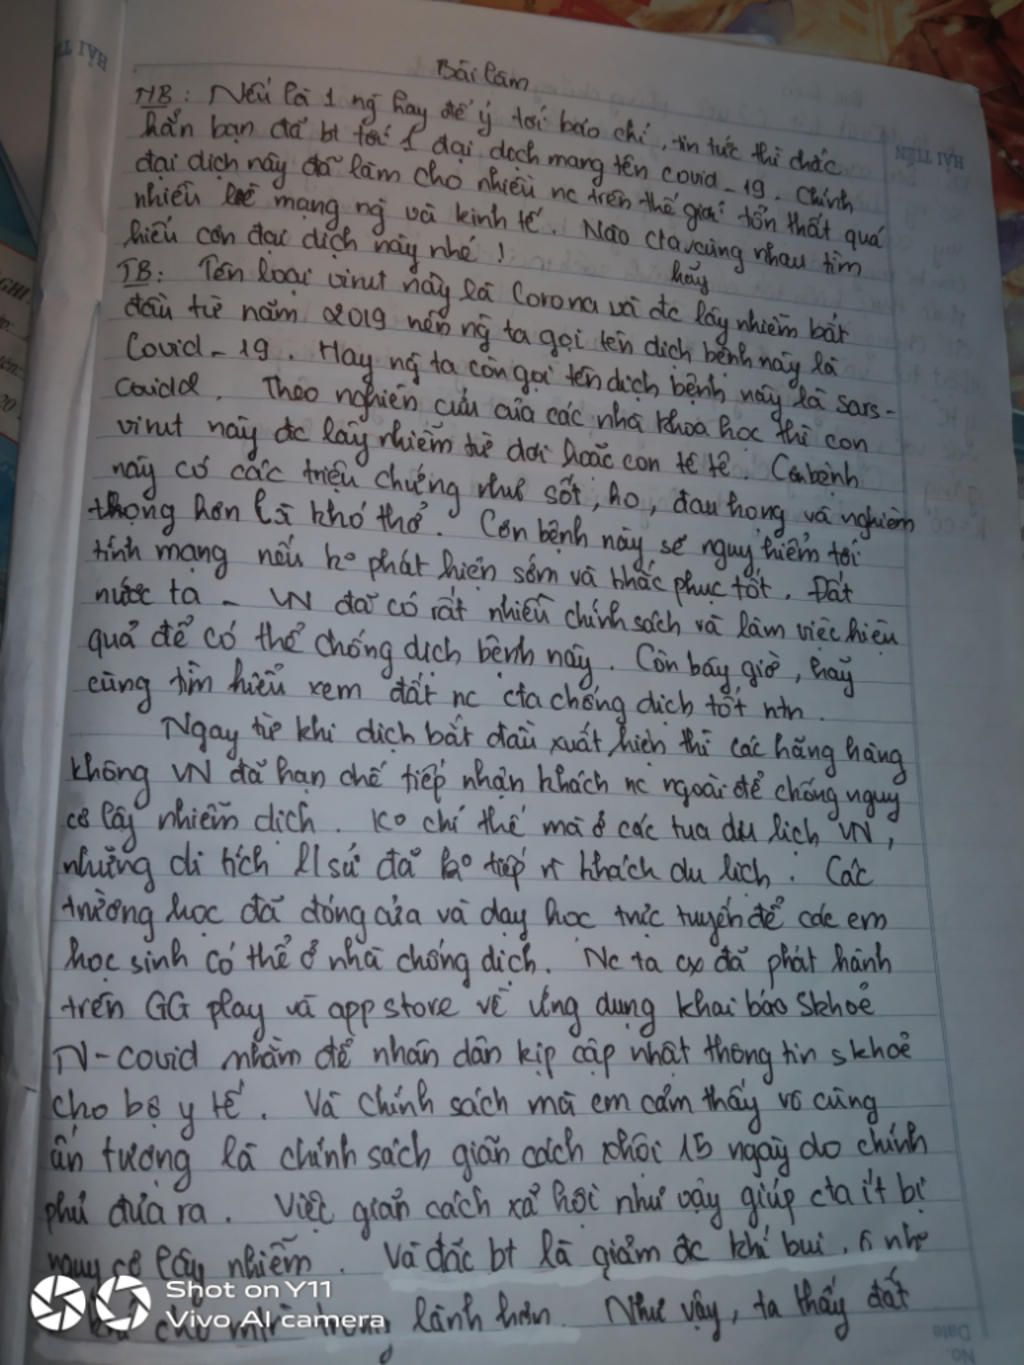 Bài làm
MB: Nếu là 1 ng hay để ý tới báo chí, tin tức thì chắc
hẳn bạn đã bt tới 1 đại dịch mang tên covid-19. Chính
đại dịch này đã làm cho nhiều nc trên thế giới tổn thất quá
nhiều mạng ng và kinh tế. Nào cta cùng nhau tìm
hãy
hiểu cơn đại dịch này nhé!
TB: Tên loại virut này là Corona và đc lây nhiễm bắt
đầu từ năm 2019 nên ng ta gọi tên dịch bệnh này là
Covid-19. Hay ng ta còn gọi tên dịch bệnh này là sars-
covid2. Theo nghiên cứu của các nhà khoa học thì con
virut này đc lây nhiễm từ dơi hoặc con tê tê. Cơn bệnh
này có các triệu chứng như sốt, ho, đau họng và nghiêm
trọng hơn là khó thở. Cơn bệnh này sẽ nguy hiểm tới
tính mạng nếu ko phát hiện sớm và khắc phục tốt. Đất
nước ta - VN đã có rất nhiều chính sách và làm việc hiệu
quả để có thể chống dịch bệnh này. Còn bây giờ, hãy
cùng tìm hiểu xem đất nc cta chống dịch tốt ntn.
Ngay từ khi dịch bắt đầu xuất hiện thì các hãng hàng
không VN đã hạn chế tiếp nhận khách nc ngoài để chống nguy
cơ lây nhiễm dịch. Ko chỉ thế mà ở các tua du lịch VN,
những di tích l/sử đã ko tiếp khách du lịch. Các
trường học đã đóng cửa và dạy học trực tuyến để các em
học sinh có thể ở nhà chống dịch. Nc ta cx đã phát hành
trên GG play và app store về ứng dụng khai báo skhoẻ
N-covid nhằm để nhân dân kịp cập nhật thông tin skhoẻ
cho bộ y tế. Và chính sách mà em cảm thấy vô cùng
ấn tượng là chính sách giãn cách xhội 15 ngày do chính
phủ đưa ra. Việc giãn cách xã hội như vậy giúp cta ít bị
nguy cơ lây nhiễm. Và đặc bt là giảm đc khí bụi, ô nh
lành hơn. Như vậy, ta thấy đất
Shot on Y11
Vivo AI camera
HẢI TIẾN
HẢI TIẾN
Date
No.